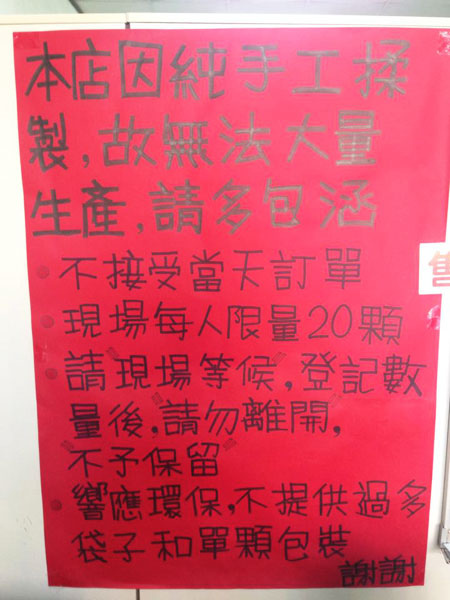 本店因純手工揉
製,故無法大量
生產,請多包涵
不接受當天訂單
現場每人限量20顆
請現場等候,登記數
量後,請勿離開,
不予保留
響應環保,不提供過多
袋子和單顆包裝
謝謝
售